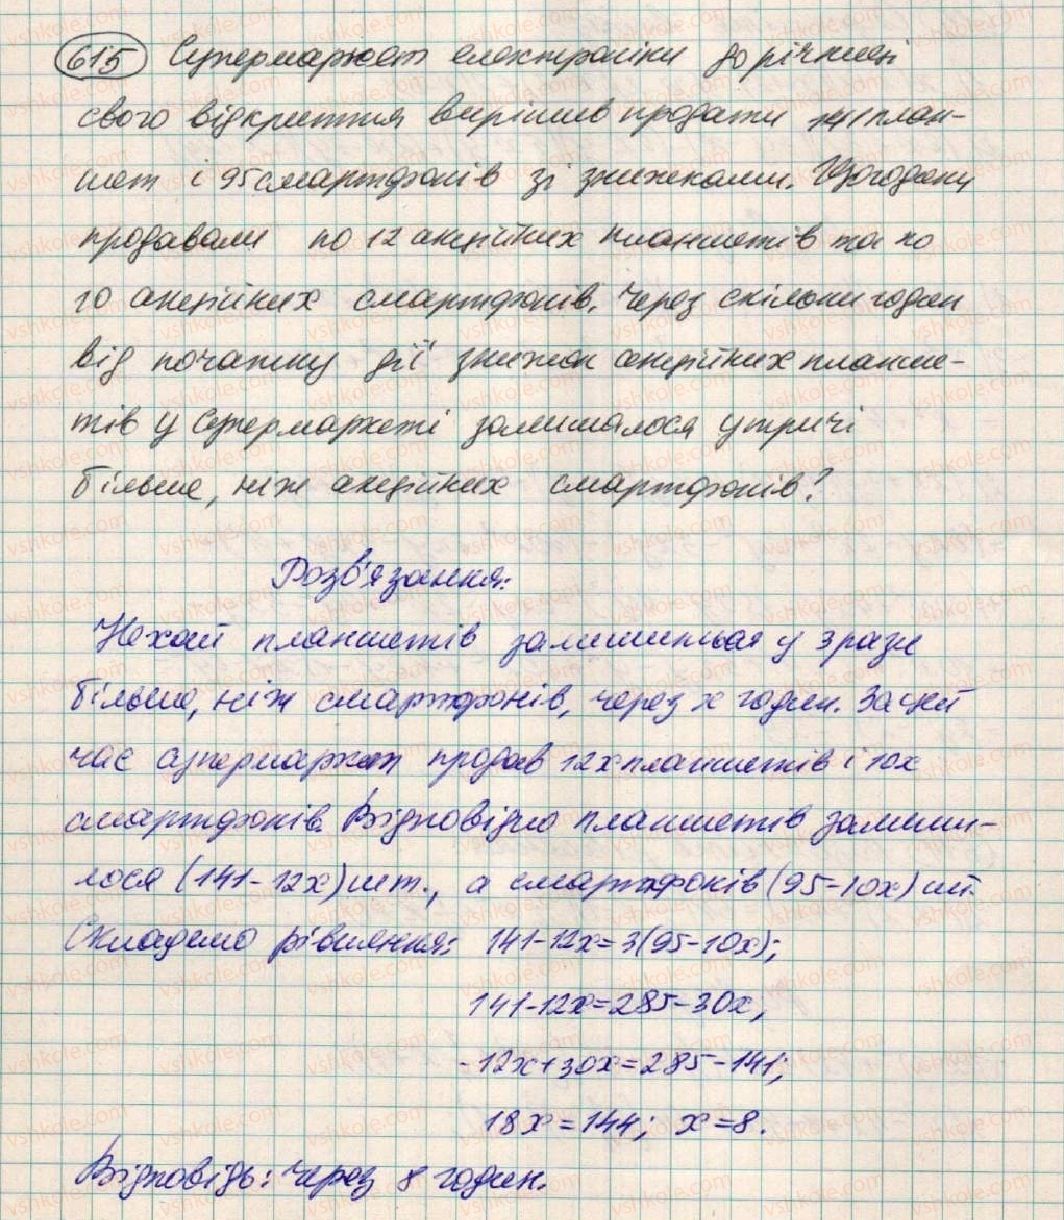 615 Супермаркет електроніки до річниці
свого відкриття вирішив продати 141 план-
шет і 95 смартфонів зі знижками. Щогодини
продавали по 12 акційних планшетів та по
10 акційних смартфонів. Через скільки годин
від початку дії знижок акційних планше-
тів у супермаркеті залишалося утричі
більше, ніж акційних смартфонів?
Розв'язання:
Нехай планшетів залишиться у 3 рази
більше, ніж смартфонів, через x годин. За цей
час супермаркет продав 12x планшетів і 10x
смартфонів. Відповідно планшетів залиши-
лося (141-12x) шт., а смартфонів (95-10x) шт.
Складемо рівняння: 141-12x=3(95-10x);
141-12x=285-30x;
-12x+30x=285-141;
18x=144; x=8.
Відповідь: через 8 годин.